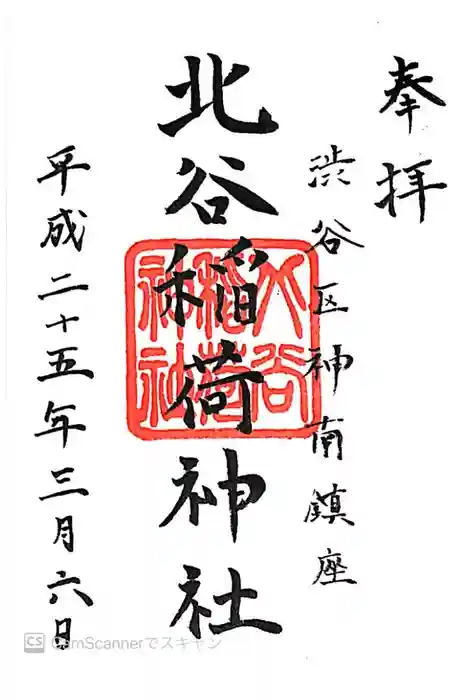 奉拝
渋谷区神南鎮座
北谷稲荷神社
平成二十五年三月六日
稲荷
神社
CS CamScannerでスキャン